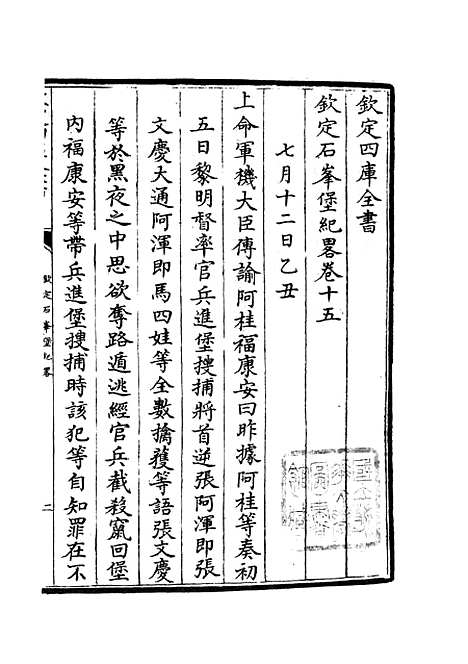 欽定四庫全書
欽定石峯堡紀畧卷十五
七月十二日乙丑
上命軍機大臣傳諭阿桂福康安曰昨據阿桂等奏初
五日黎明督率官兵進堡搜捕將首逆張阿渾即張
文慶大通阿渾即馬四娃等全數擒獲等語張文慶
等於黑夜之中思欲奪路遁逃經官兵截殺竄回堡
內福康安等帶兵進堡搜捕時該犯等自知罪在不
欽定石峯堡紀畧